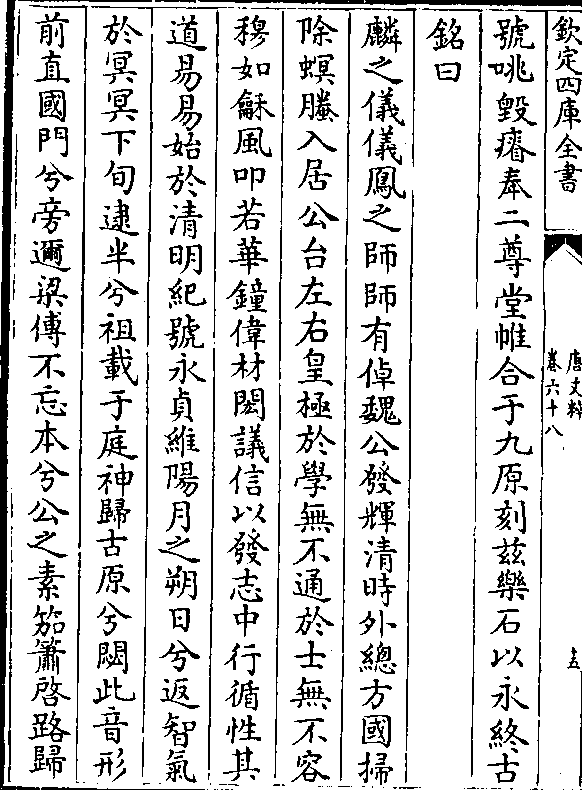 欽定四庫全書
唐文粹
卷六十八
十五
號咷毀瘠奉二尊堂帷合于九原刻茲樂石以永終古
銘曰
麟之儀儀鳳之師師有倬魏公發輝清時外總方國掃
除螟螣入居公台左右皇極於學無不通於士無不容
穆如龢風叩若華鐘偉材閎議信以發志中行循性其
道易易始於清明紀號永貞維陽月之朔日兮返智氣
於冥冥下旬逮半兮祖載于庭神歸古原兮閟此音形
前直國門兮旁邇梁傅不忘本兮公之素笳簫啓路歸